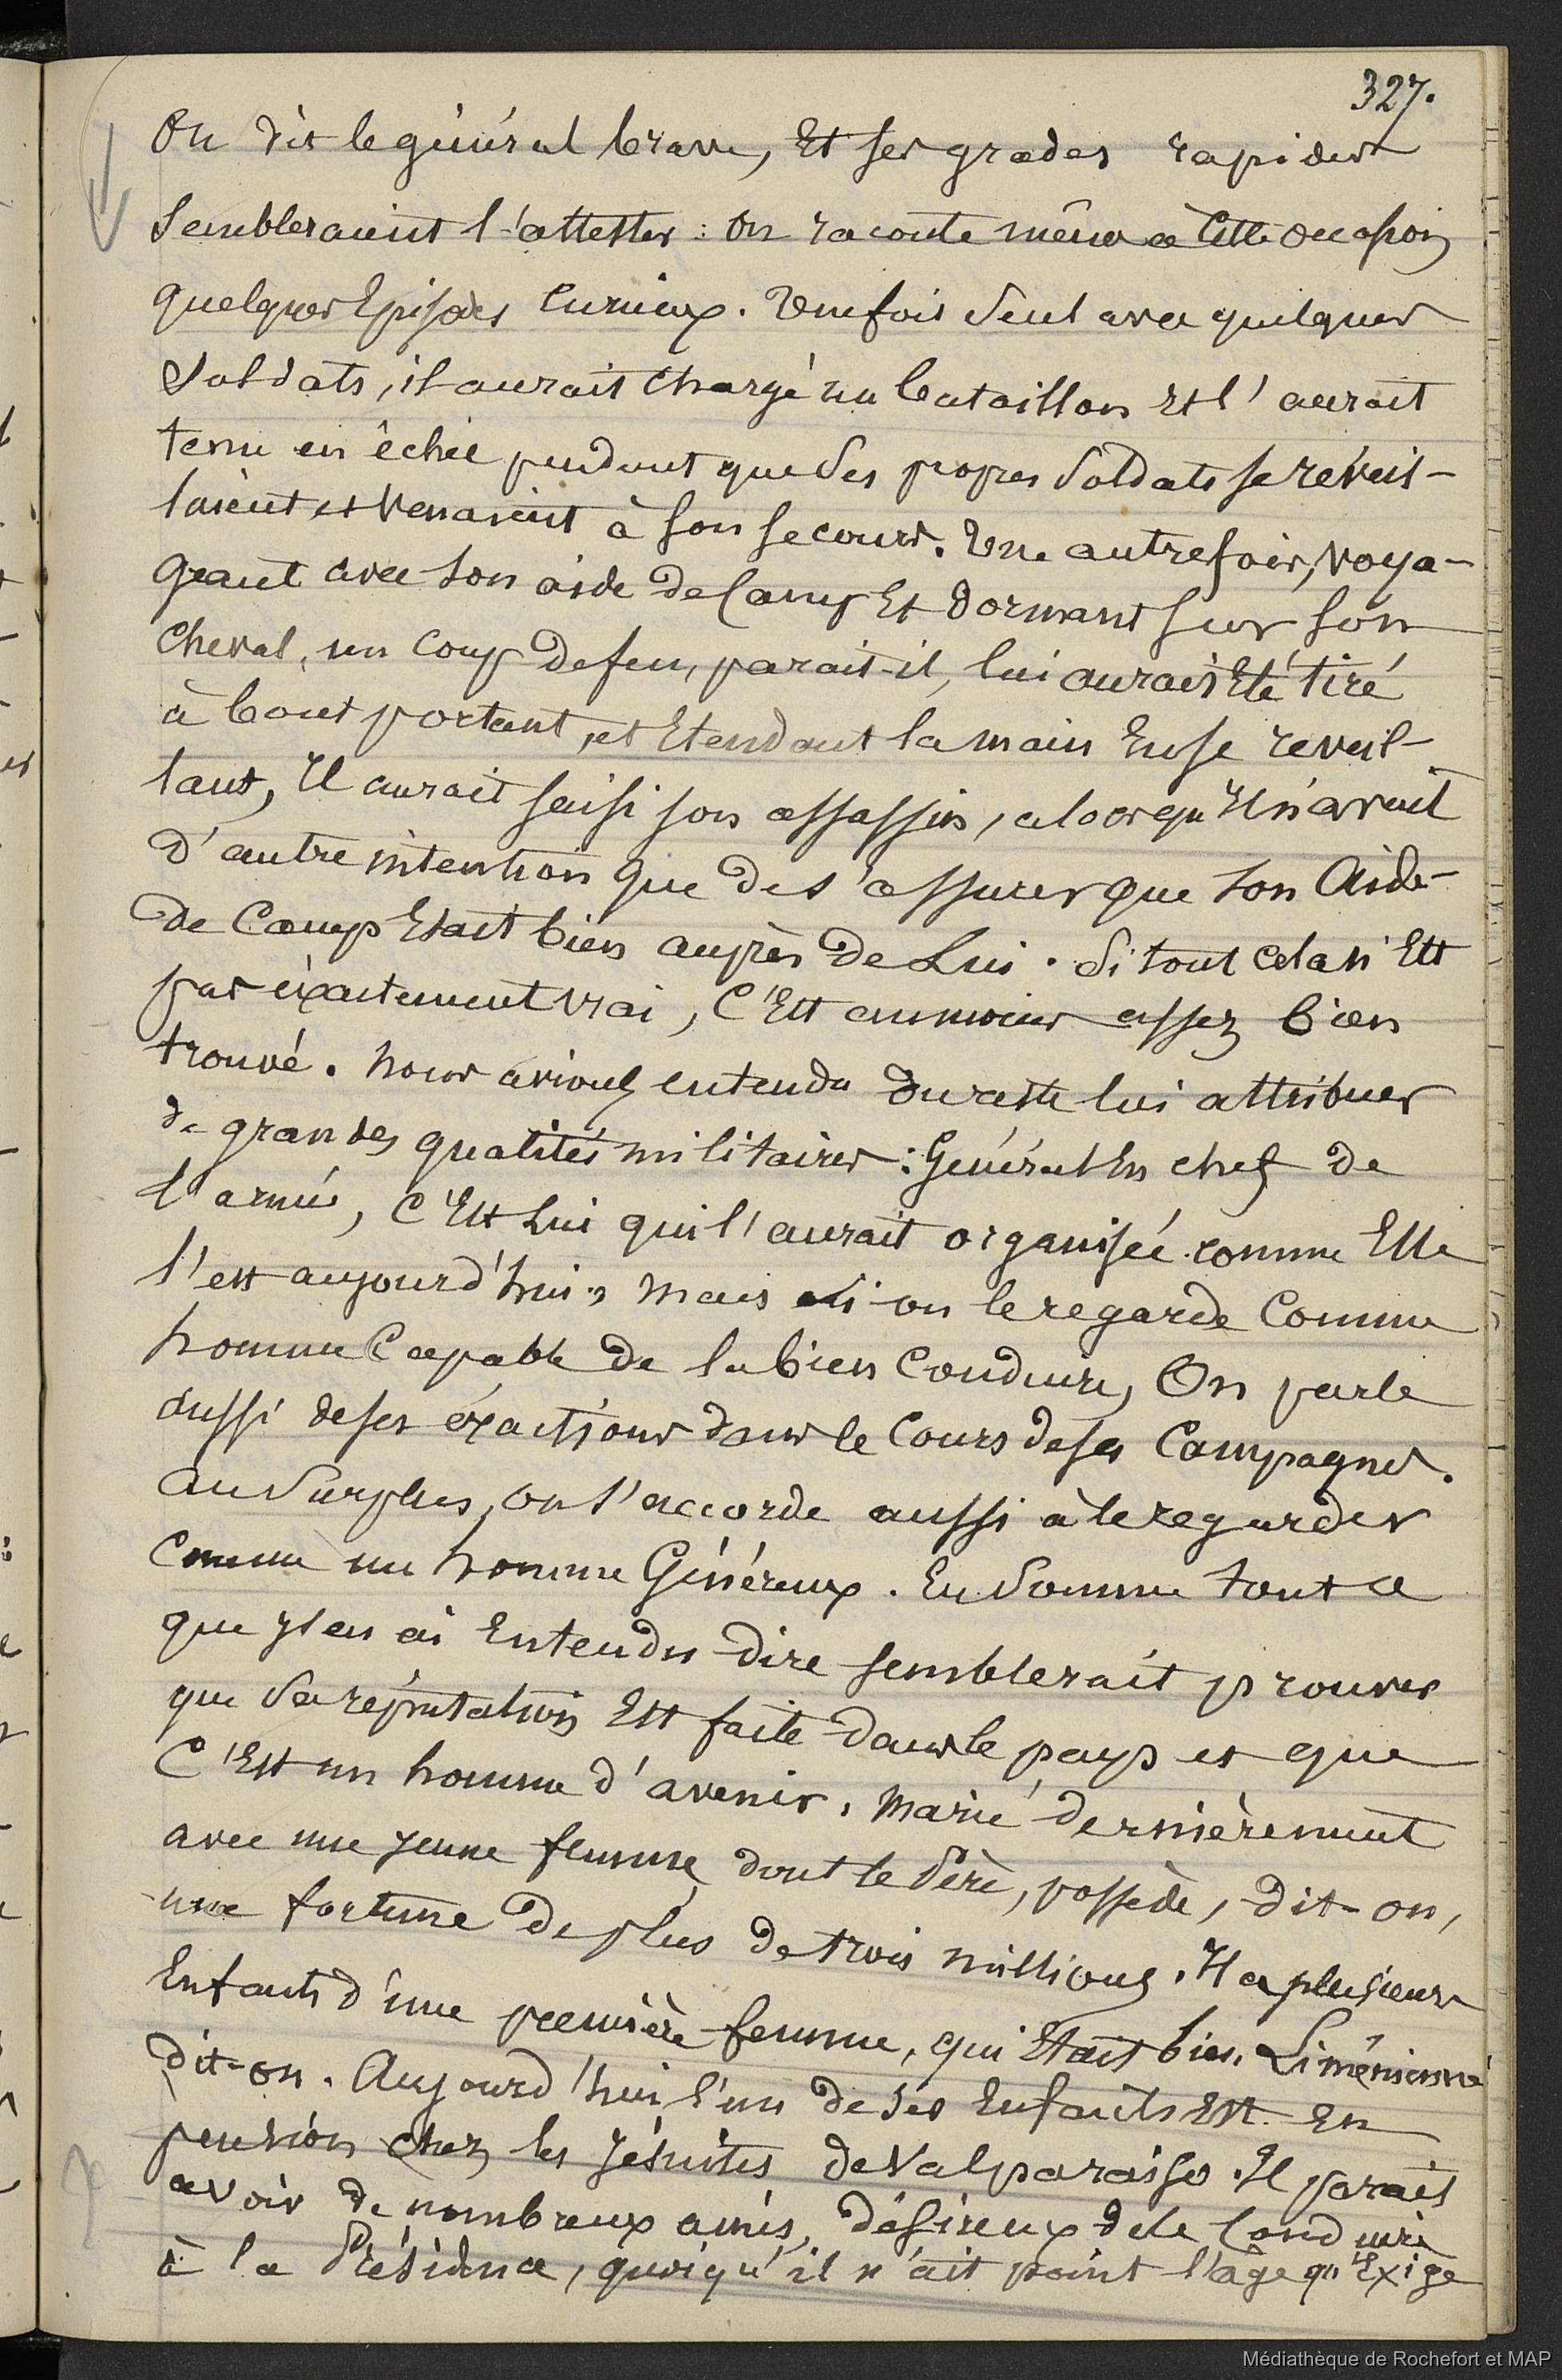 327.
On dit le général brave, Et ses grades rapides
Sembleraient l'attester : on raconte même à Cette occasion
quelques Episodes Curieux. Une fois Seul avec quelques
Soldats, il aurait Chargé un bataillon Et l'aurait
tenu en échec pendant que Ses propres Soldats se réveil-
laient et Venaient à son secours. Une autre fois, voya-
geant avec son aide de Camp Et dormant sur son
Cheval, un Coup de feu, parait-il, lui aurait Eté tiré
à bout portant, et Etendant la main En se réveil-
lant, Il aurait saisi son assassin, alors qu'Il n'avait
d'autre intention que de s'assurer que son Aide-
de Camp Etait bien auprès de Lui. Si tout cela n'Est
pas éxactement vrai, C'Est au moins assez bien
trouvé. Nous avions entendu du reste lui attribuer
de grandes qualités militaires : Général En chef de
l'armée, C'Est Lui qui l'aurait organisée comme Elle
l'est aujourd'hui, Mais si on le regarde Comme
homme Capable de la bien Conduire, On parle
aussi de ses éxactions dans le Cours de ses Campagnes.
Au Surplus, on s'accorde aussi à le regarder
Comme un homme Généreux. En Somme tout ce
que j'en ai Entendu dire semblerait prouver
que Sa réputation Est faite dans le pays et que
C'Est un homme d'avenir. Marié dernièrement
avec une jeune femme dont le Père, possède, dit-on,
une fortune de plus de trois millions. Il a plusieurs
Enfants d'une première femme, qui Etait bien Liménienne
dit-on. Aujourd'hui l'un de ses Enfants Est En
pension chez les Jésuites de Valparaiso. Il parait
avoir de nombreux amis, désireux de le Conduire
à la Présidence, quoiqu'il n'ait point l'âge qu'Exige
Médiathèque de Rochefort et MAP